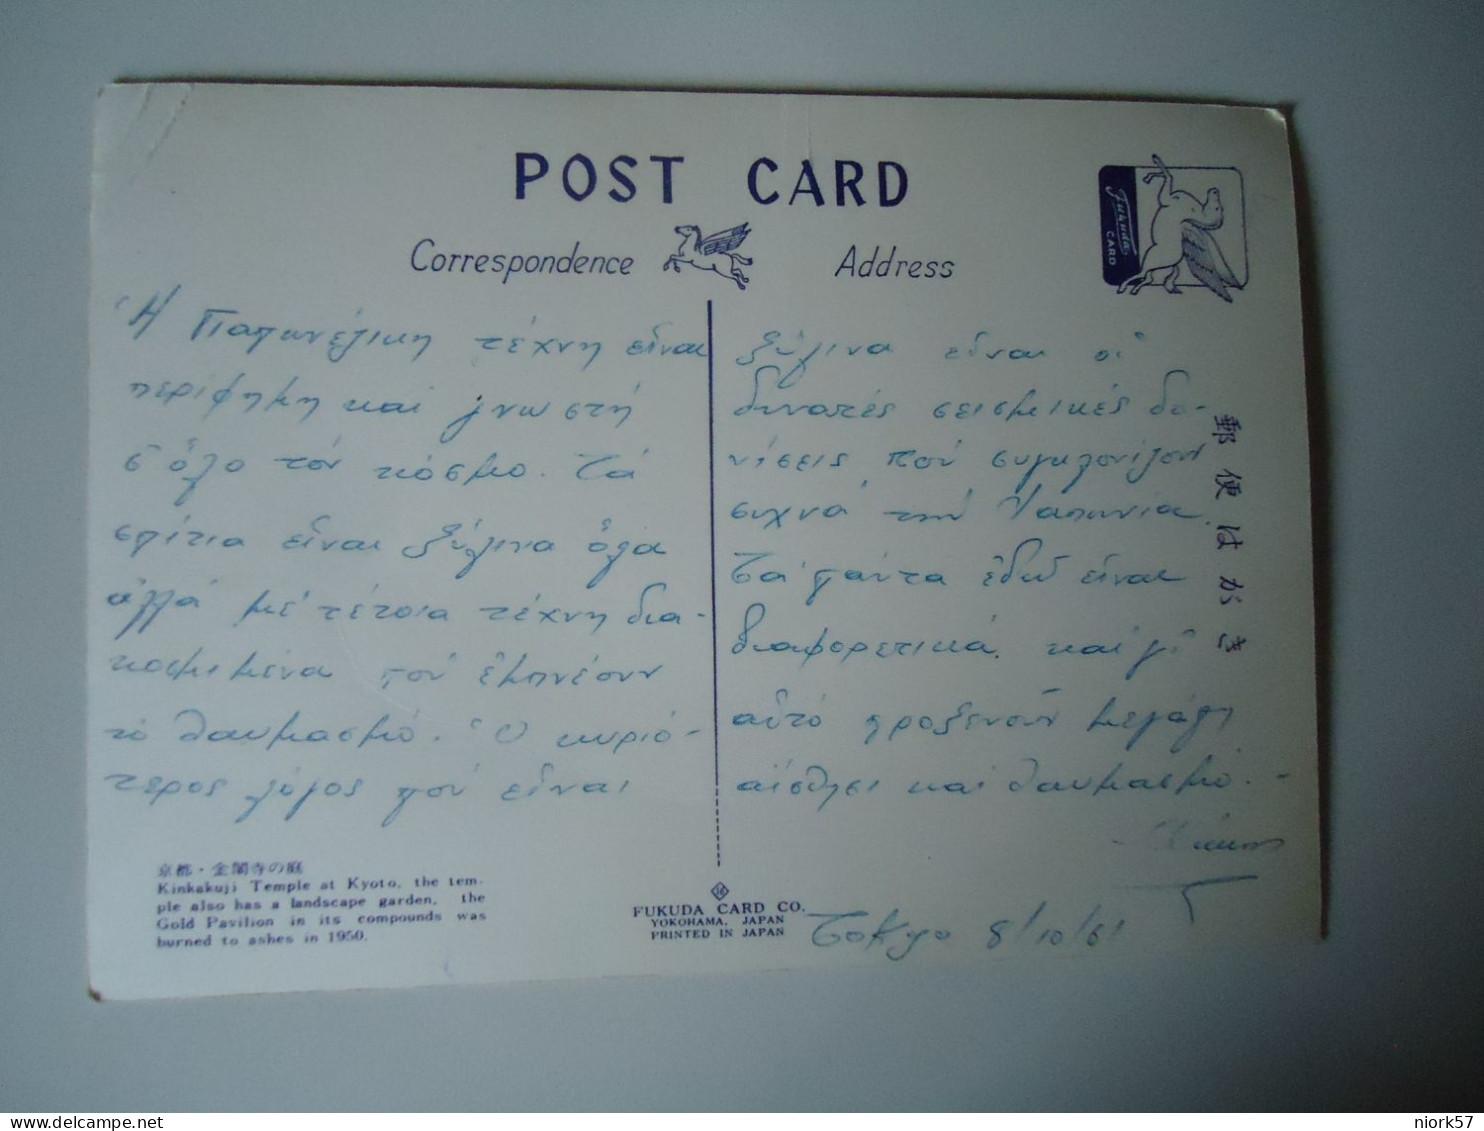 POST CARD
Correspondence
Address
Fukuda
CARD
Ἡ Γιαπωνέζικη τέχνη εἶναι
περίφημη καί γνωστή
σ' ὅλο τόν κόσμο. Τά
σπίτια εἶναι ξύλινα ὅλα
ἀλλά μέ τέτοια τέχνη δια-
κοσμιμένα πού ἐμπνέουν
τό θαυμασμό. Ὁ κυριό-
τερος λόγος πού εἶναι
ξύλινα εἶναι οἱ
δυνατές σεισμικές δο-
νίσεις πού συγκλονίζουν
συχνά τήν Ἰαπωνία.
Τά πάντα ἐδῶ εἶναι
διαφορετικά. καί γι'
αὐτό προξενοῦν μεγάλη
αἴσθησι καί θαυμασμό.-
Τόκyο 8/10/61
郵便はがき
京都・金閣寺の庭
Kinkakuji Temple at Kyoto, the tem-
ple also has a landscape garden, the
Gold Pavilion in its compounds was
burned to ashes in 1950.
FUKUDA CARD CO.
YOKOHAMA, JAPAN
PRINTED IN JAPAN
niork57